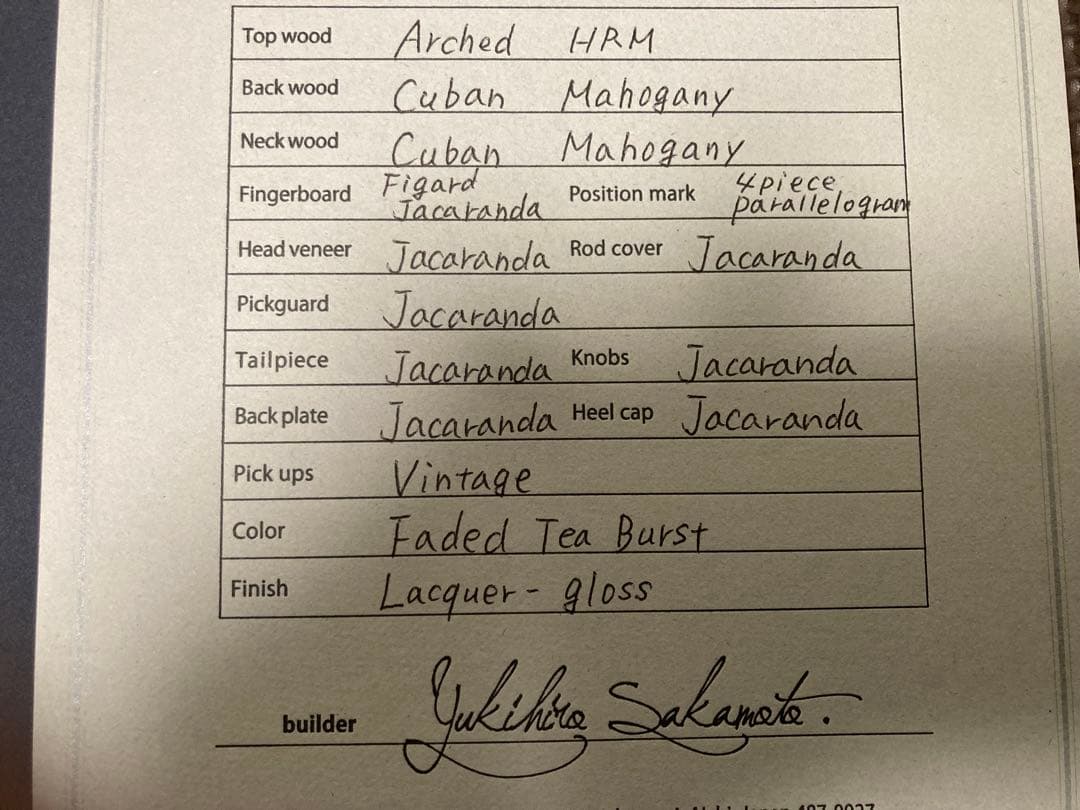 Top wood Arched HRM
Back wood Cuban Mahogany
Neck wood Cuban Mahogany
Fingerboard Figard Jacaranda Position mark 4piece, parallelogram
Head veneer Jacaranda Rod cover Jacaranda
Pickguard Jacaranda
Tailpiece Jacaranda Knobs Jacaranda
Back plate Jacaranda Heel cap Jacaranda
Pick ups Vintage
Color Faded Tea Burst
Finish Lacquer - gloss
builder Yukihiro Sakamoto.